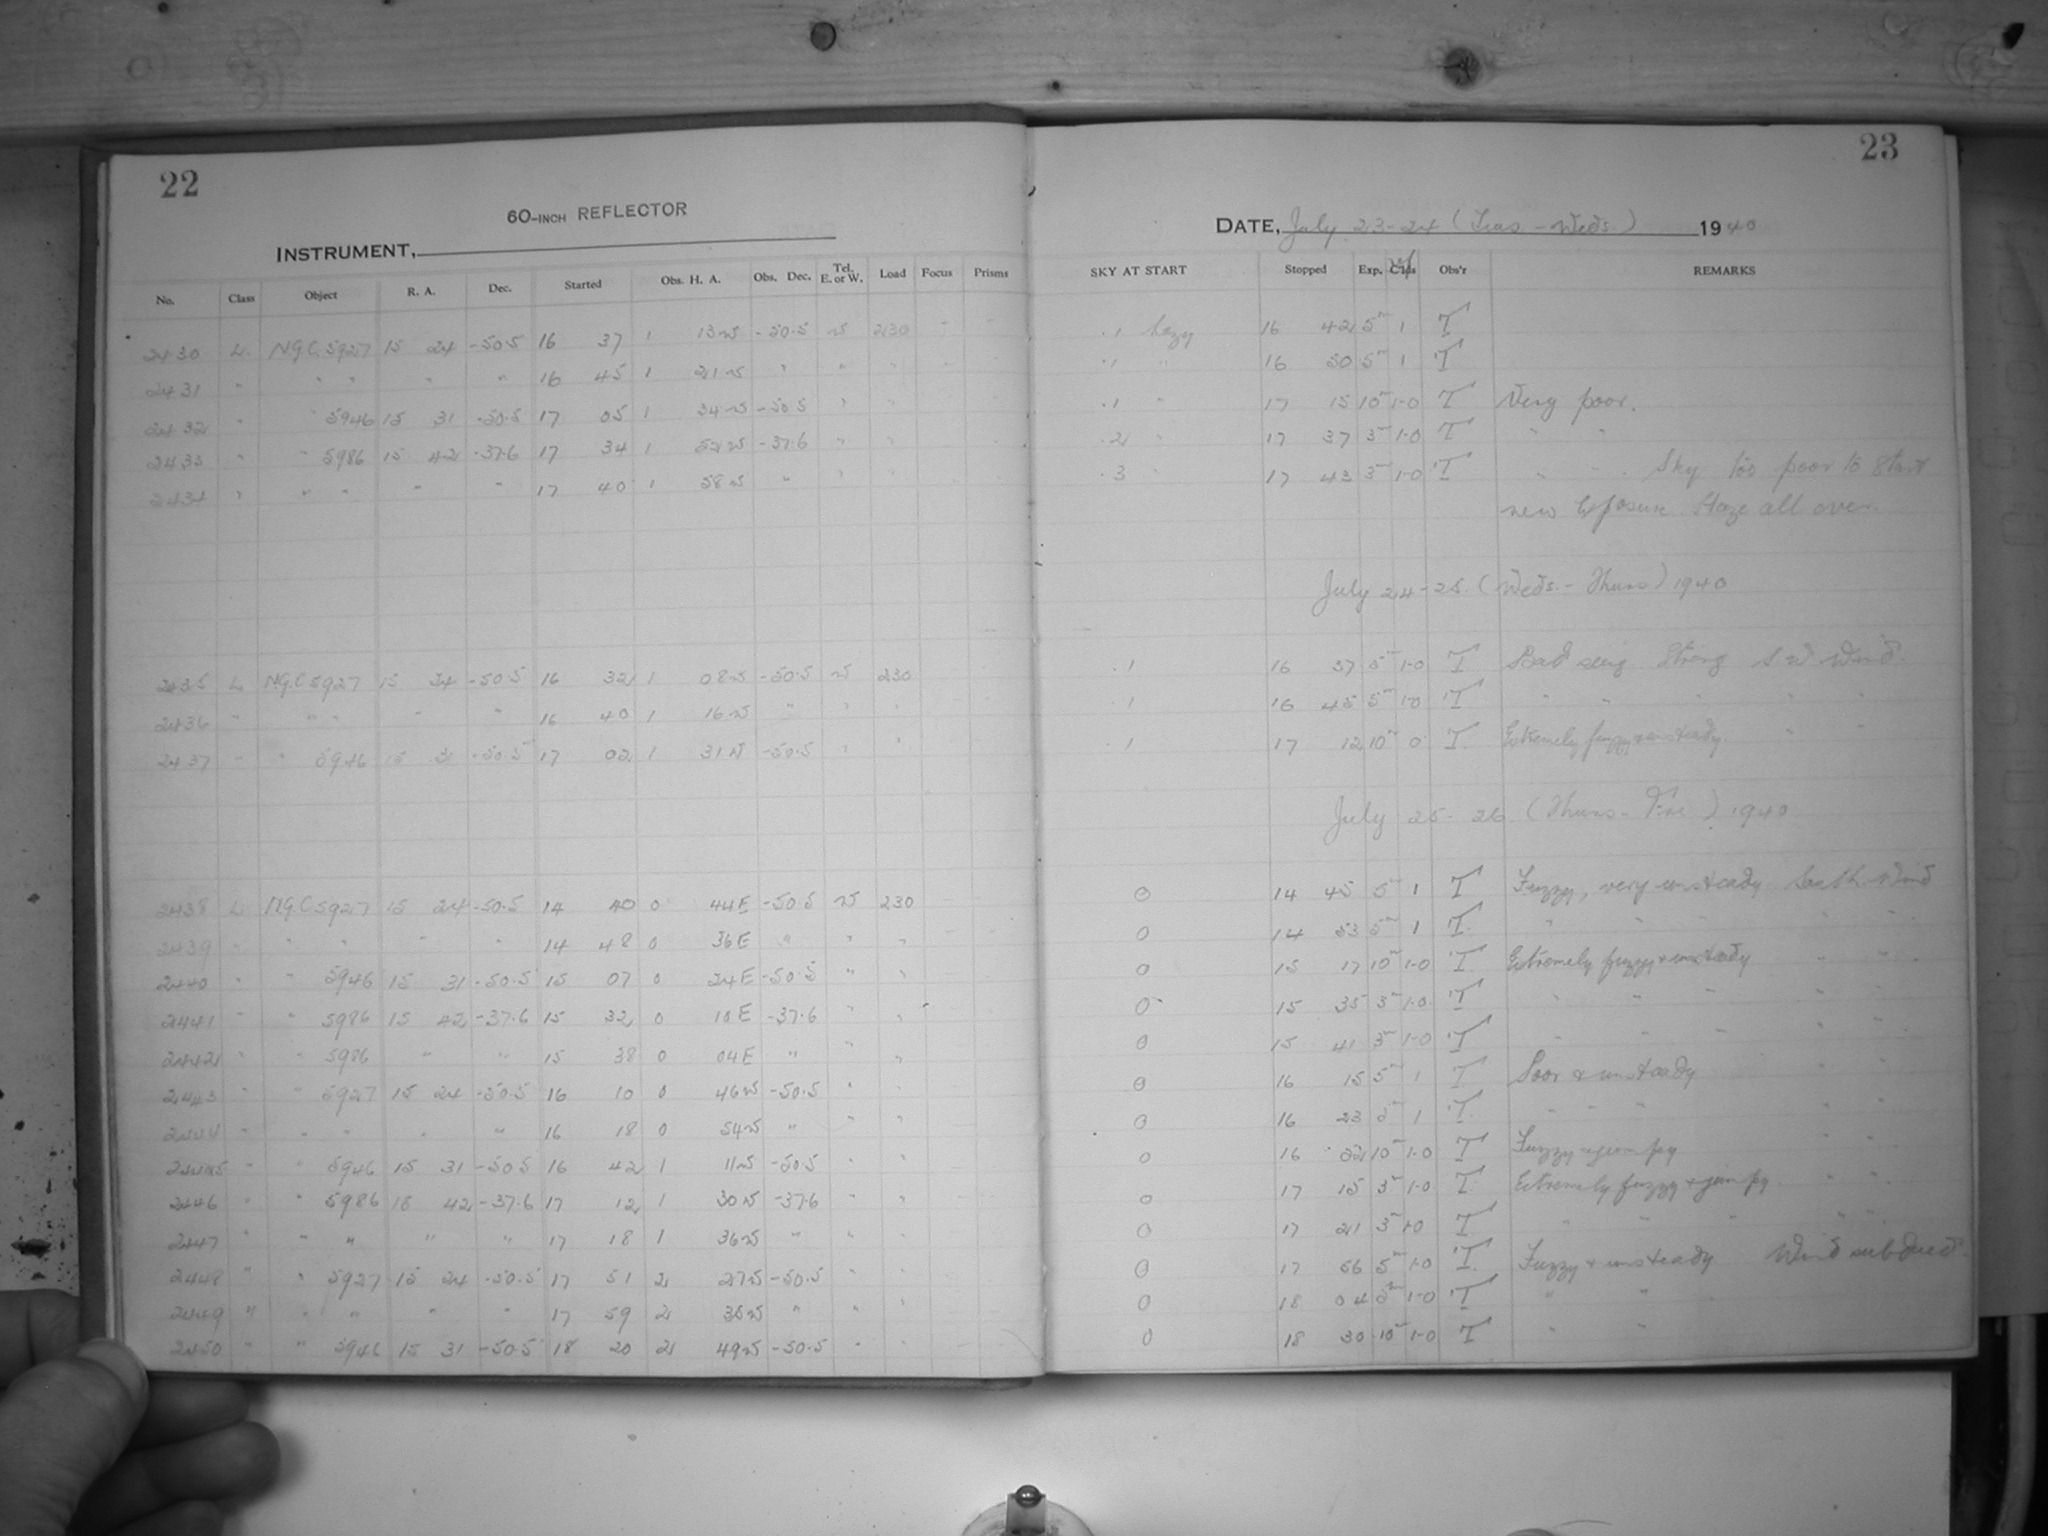 22
60-INCH REFLECTOR
INSTRUMENT,
No. Class Object R. A. Dec. Started Obs. H. A. Obs. Dec. Tel. E. or W. Load Focus Prisms
2430 L. N.G.C. 5927 15 24 -50.5 16 37 1 13 W -50.5 W 230
2431 " " " " " 16 45 1 21 W " " "
2432 " " 5946 15 31 -50.5 17 05 1 34 W -50.5 " "
2433 " " 5986 15 42 -37.6 17 34 1 52 W -37.6 " "
2434 " " " " " 17 40 1 58 W " " "
2435 L N.G.C 5927 15 24 -50.5 16 32 1 08 W -50.5 W 230
2436 " " " " " 16 40 1 16 W " " "
2437 " " 5946 15 31 -50.5 17 02 1 31 W -50.5 " "
2438 L N.G.C 5927 15 24 -50.5 14 40 0 44 E -50.5 W 230
2439 " " " " " 14 48 0 36 E " " "
2440 " " 5946 15 31 -50.5 15 07 0 24 E -50.5 " "
2441 " " 5986 15 42 -37.6 15 32 0 10 E -37.6 " "
2442 " " 5986 " " 15 38 0 04 E " " "
2443 " " 5927 15 24 -50.5 16 10 0 46 W -50.5 " "
2444 " " " " " 16 18 0 54 W " " "
2445 " " 5946 15 31 -50.5 16 42 1 11 W -50.5 " "
2446 " " 5986 15 42 -37.6 17 12 1 30 W -37.6 " "
2447 " " " " " 17 18 1 36 W " " "
2448 " " 5927 15 24 -50.5 17 51 2 27 W -50.5 " "
2449 " " " " " 17 59 2 35 W " " "
2450 " " 5946 15 31 -50.5 18 20 2 49 W -50.5 " "
23
DATE, July 23-24 (Tues - Weds.) 1940
SKY AT START Stopped Exp. Obs'r REMARKS
.1 hazy 16 42 5m 1 T
.1 " 16 50 5m 1 T
.1 " 17 15 10m 1-0 T Very poor.
.2 " 17 37 3m 1-0 T " "
.3 " 17 43 3m 1-0 T " " Sky too poor to start
new exposure. Haze all over.
July 24-25 (Weds. - Thurs) 1940
.1 16 37 5m 1-0 T Bad seeing Strong S W Wind.
.1 16 45 5m 1-0 T " " " " "
.1 17 12 10m 0 T Extremely fuzzy & unsteady "
July 25-26 (Thurs - Fri) 1940
0 14 45 5m 1 T Fuzzy, very unsteady South Wind
0 14 53 5m 1 T " " " " "
0 15 17 10m 1-0 T Extremely fuzzy & unsteady " "
0 15 35 3m 1-0 T " " " " "
0 15 41 3m 1-0 T " " " " "
0 16 15 5m 1 T Poor & unsteady " "
0 16 23 5m 1 T " " " " "
0 16 52 10m 1-0 T Fuzzy & jumpy " "
0 17 15 3m 1-0 T Extremely fuzzy & jumpy " "
0 17 21 3m 1-0 T " " " " "
0 17 56 5m 1-0 T Fuzzy & unsteady Wind subdued
0 18 04 5m 1-0 T " "
0 18 30 10m 1-0 T " "